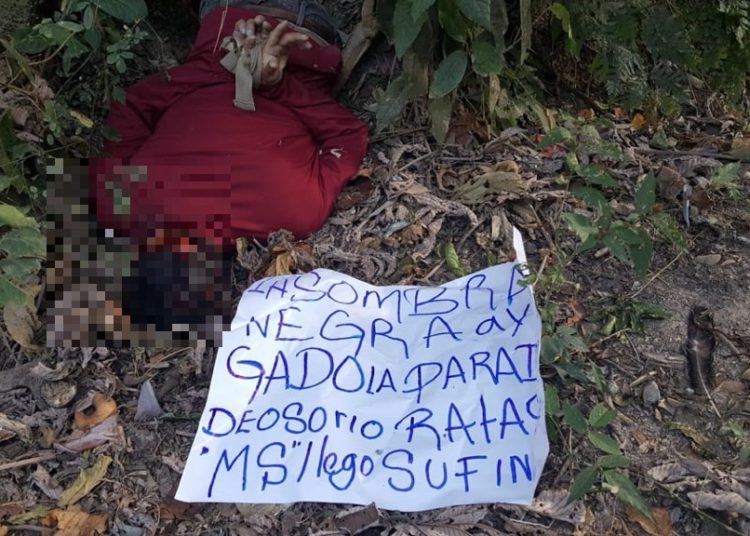 LA SOMBRA
NEGRA a y
GADO LA PARA
DE OSOriO RATAC
"MS" llego SU FIN